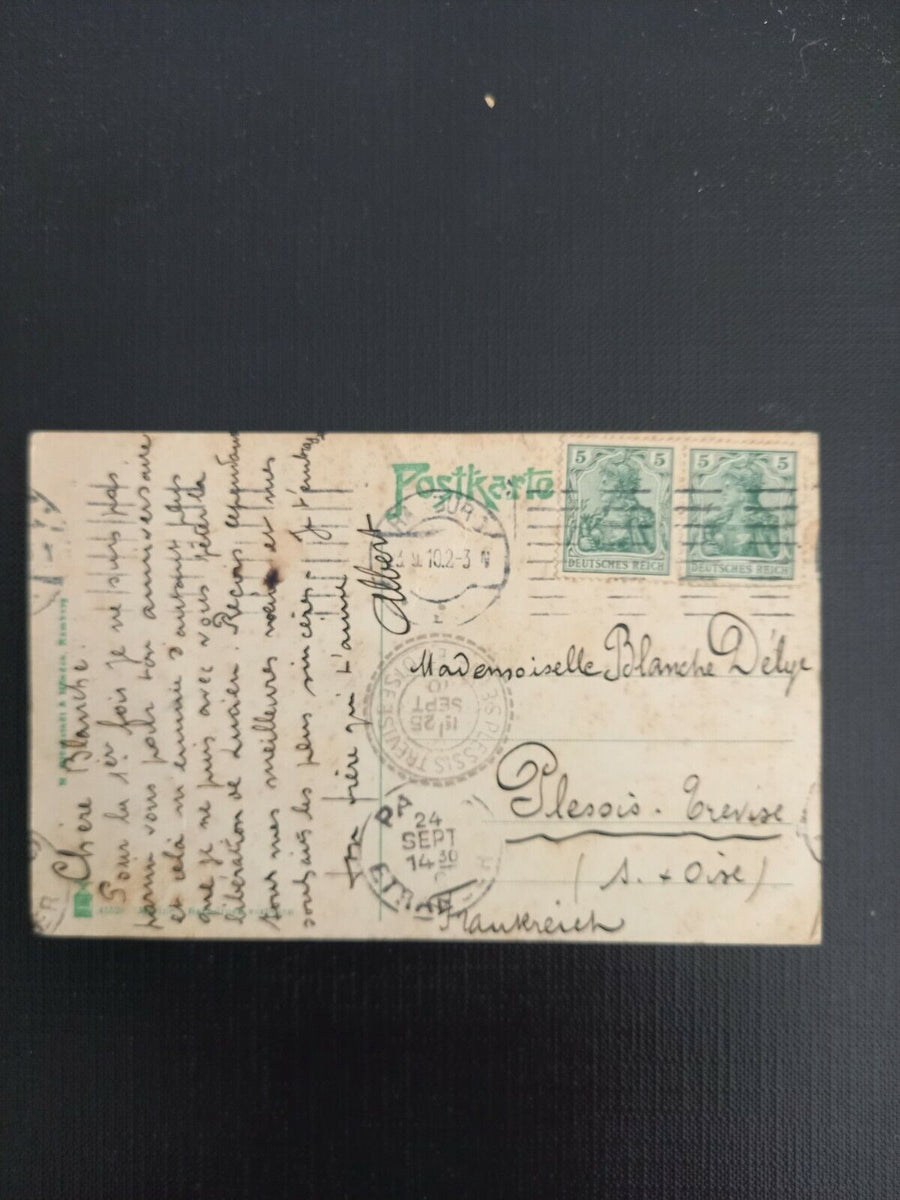 Postkarte
5 5
DEUTSCHES REICH
5 5
DEUTSCHES REICH
10.2-3 N
Mademoiselle Blanche Délye
Plessis - Trévise
(S. & Oise)
Frankreich
PLESSIS TREVISE
25
SEPT
10
24
SEPT
14 30
Chère Blanche.
Pour la 1er fois je ne suis pas
parmi vous pour ton anniversaire
et celà m'ennuie d'autant plus
que je ne puis avec vous fêter la
libération de Lucien. Reçois cependant
tous mes meilleures voeux et mes
souhaits les plus sincères. Je t'embrasse
Ton frère qui t'aime
Albert